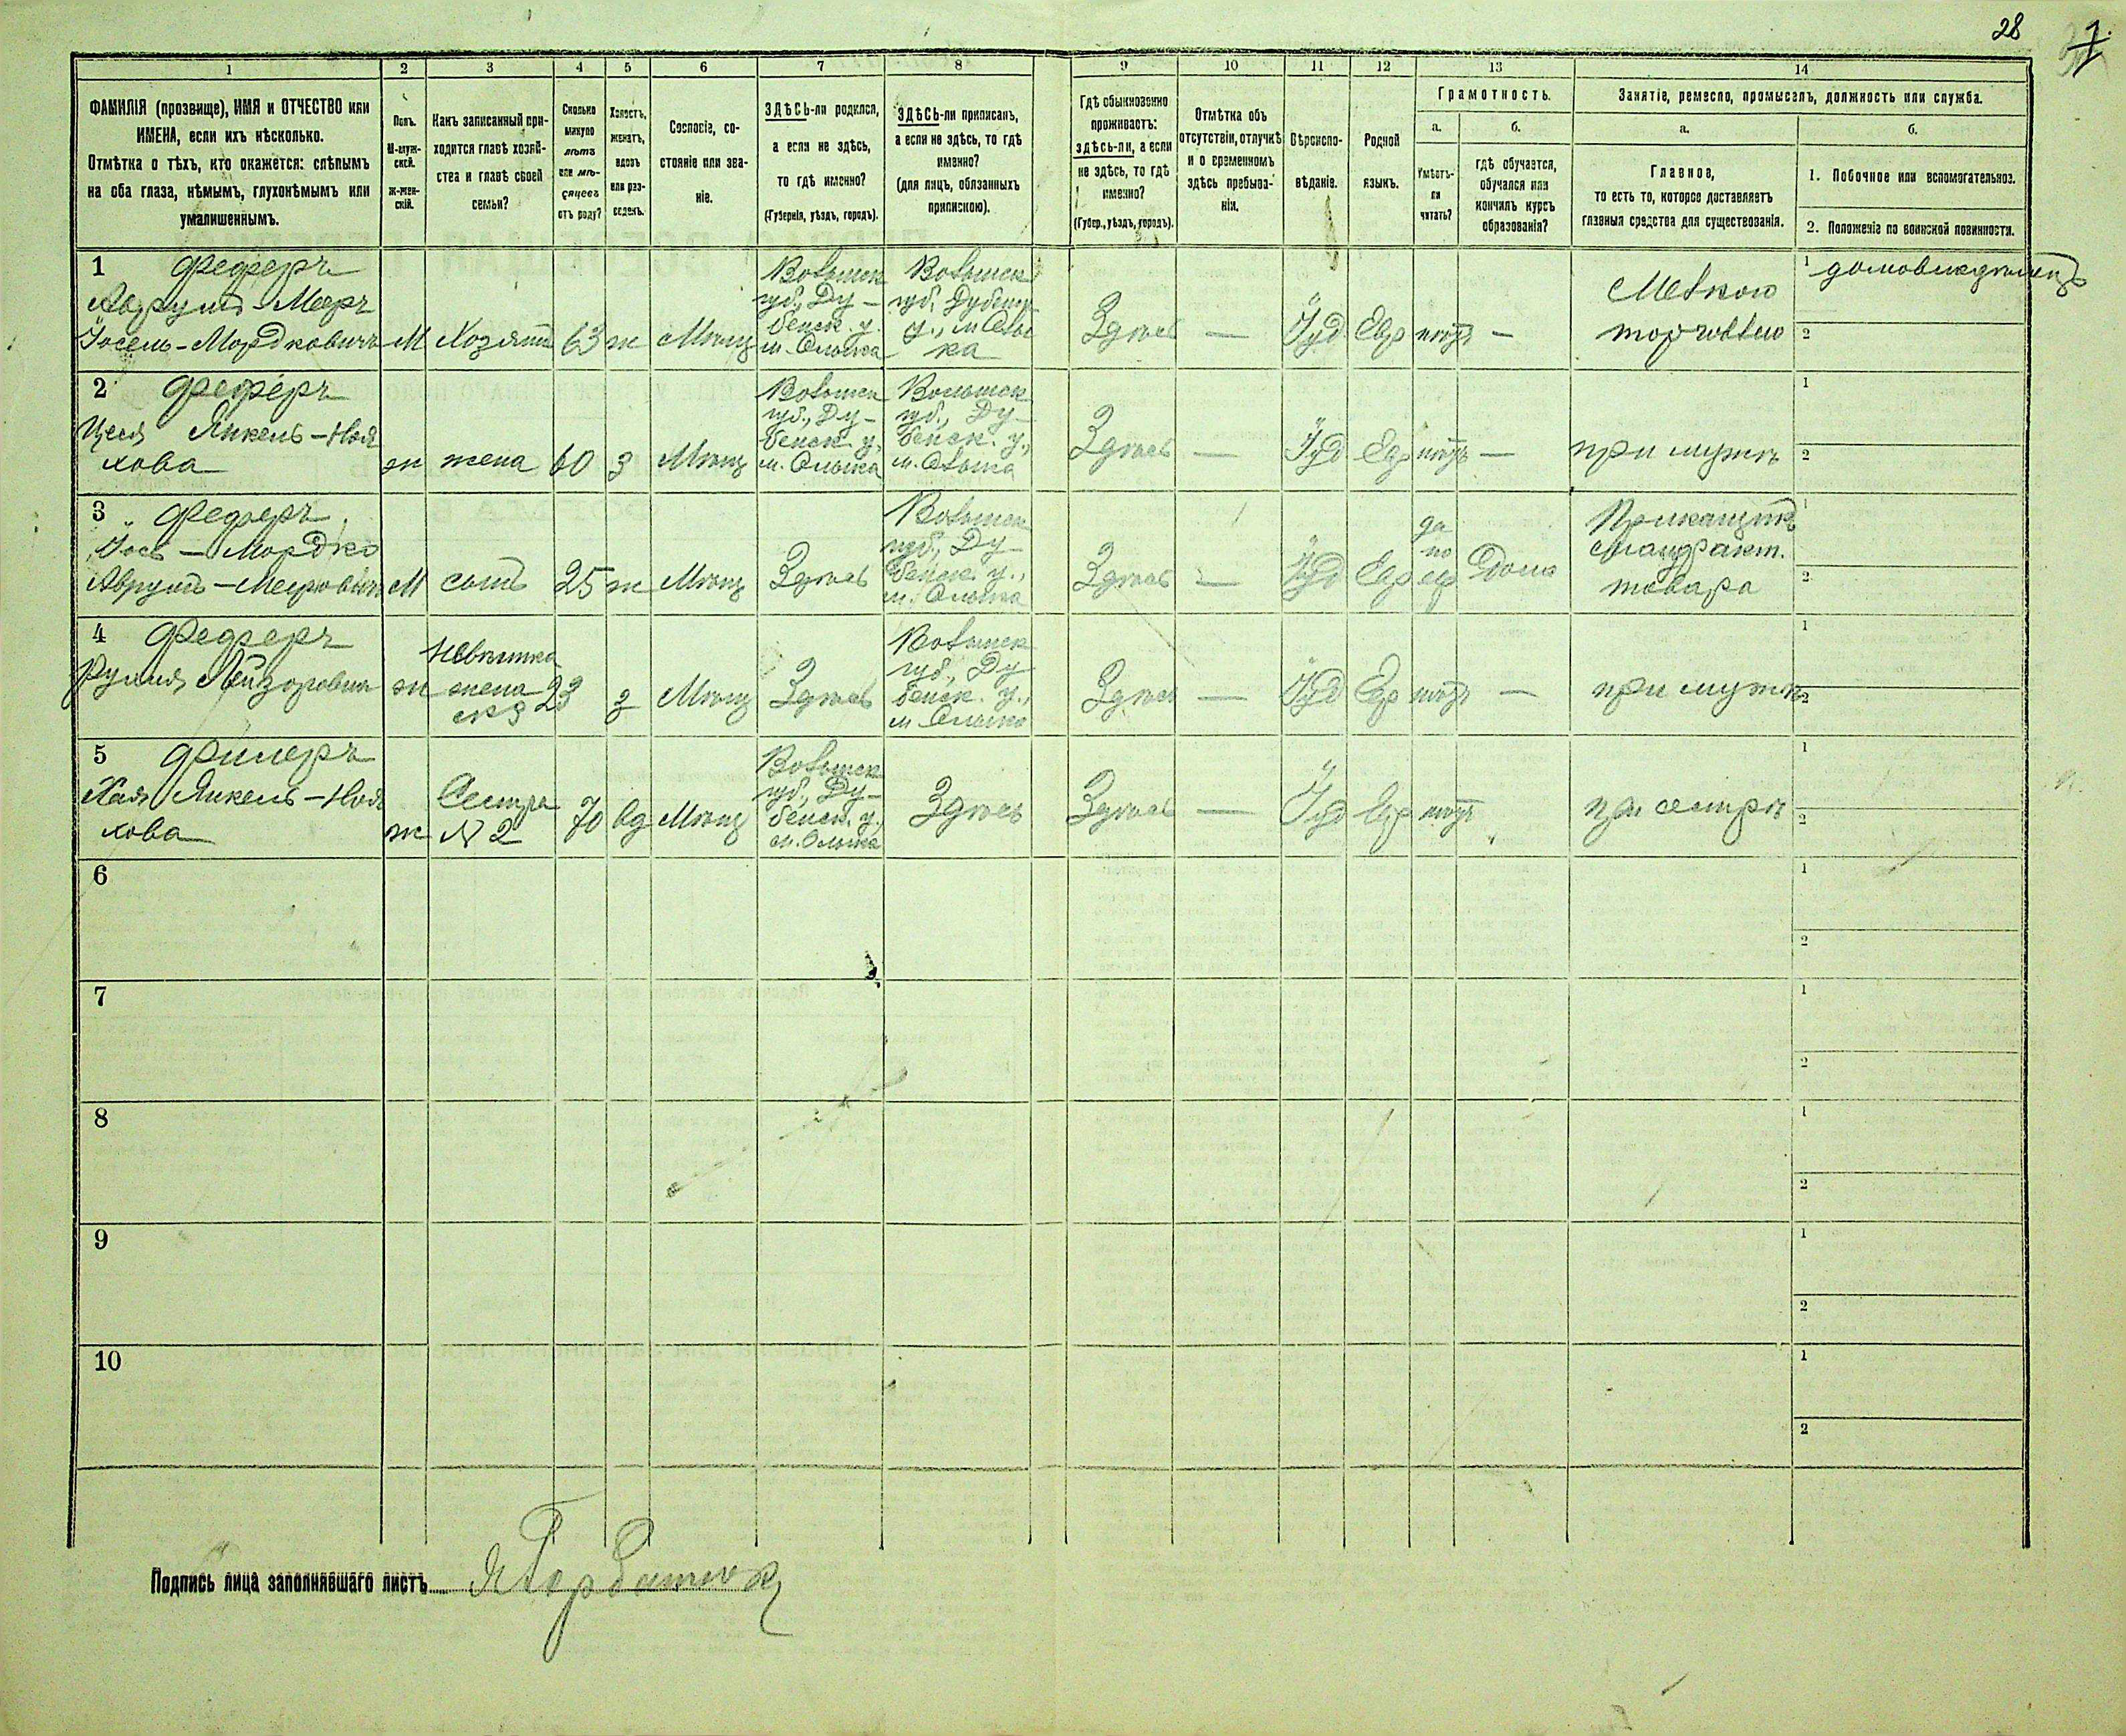 28
7.
1 2 3 4 5 6 7 8 9 10 11 12 13 14
ФАМИЛІЯ (прозвище), ИМЯ и ОТЧЕСТВО или
ИМЕНА, если ихъ нѣсколько.
Отмѣтка о тѣхъ, кто окажется: слѣпымъ
на оба глаза, нѣмымъ, глухонѣмымъ или
умалишеннымъ.
Полъ.
М-муж-
ской.
Ж-жен-
скій.
Какъ записанный при-
ходится главѣ хозяй-
ства и главѣ своей
семьи?
Сколько
минуло
лѣтъ
или мѣ-
сяцевъ
отъ роду?
Холостъ,
женатъ,
вдовъ
или раз-
веденъ.
Сословіе, со-
стояніе или зва-
ніе.
ЗДѢСЬ-ли родился,
а если не здѣсь,
то гдѣ именно?
(Губернія, уѣздъ, городъ).
ЗДѢСЬ-ли приписанъ,
а если не здѣсь, то гдѣ
именно?
(для лицъ, обязанныхъ
припискою).
Гдѣ обыкновенно
проживаетъ:
здѣсь-ли, а если
не здѣсь, то гдѣ
именно?
(Губер., уѣздъ, городъ).
Отмѣтка объ
отсутствіи, отлучкѣ
и о временномъ
здѣсь пребыва-
ніи.
Вѣроиспо-
вѣданіе.
Родной
языкъ.
Грамотность.
а.
Умѣетъ-
ли
читать?
б.
гдѣ обучается,
обучался или
кончилъ курсъ
образованія?
Занятіе, ремесло, промыселъ, должность или служба.
а.
Главное,
то есть то, которое доставляетъ
главныя средства для существованія.
б.
1. Побочное или вспомогательное.
2. Положеніе по воинской повинности.
1 Феферъ
Аврумъ-Мееръ
Іосель-Мордковичъ
М
Хозяинъ
63
ж
Мѣщ
Волынск
губ., Ду-
бенск. у.
м. Олыка
Волынск
губ. Дубенск
у., м Олы
ка
Здѣсь
—
Іуд
Евр
нѣтъ
—
Мелкою
торговлею
1 домовладѣлецъ
2
2 Феферъ
Янкель-Ноя
хова
ж
жена
60
з
Мѣщ
Волынск
губ., Ду-
бенск у.,
м. Олыка
Волынск
губ., Ду-
бенск. у.,
м. Олыка
Здѣсь
—
Іуд
Евр
нѣтъ
—
при мужѣ
1
2
3 Феферъ
Іось-Мордко
Аврумъ-Мееровичъ
М
сынъ
25
ж
Мѣщ
Здѣсь
Волынск
губ., Ду-
бенск у.,
м. Олыка
Здѣсь
—
Іуд
Евр
да
по
евр
Дома
Прикащикъ
мануфакт.
товара
1
2
4 Феферъ
Лейзоровна
ж
Невѣстка
жена
№3
23
з
Мѣщ
Здѣсь
Волынск
губ., Ду
бенск. у.,
м Олыка
Здѣсь
—
Іуд
Евр
нѣтъ
—
при мужѣ
1
2
5
Хая Янкель-Ноя
хова
ж
Сестра
№ 2
70
вд
Мѣщ
Волынск
губ., Ду-
бенск. у.,
м. Олыка
Здѣсь
Здѣсь
—
Іуд
Евр
нѣтъ
при сестрѣ
1
2
6
1
2
7
1
2
8
1
2
9
1
2
10
1
2
Подпись лица заполнявшаго листъ